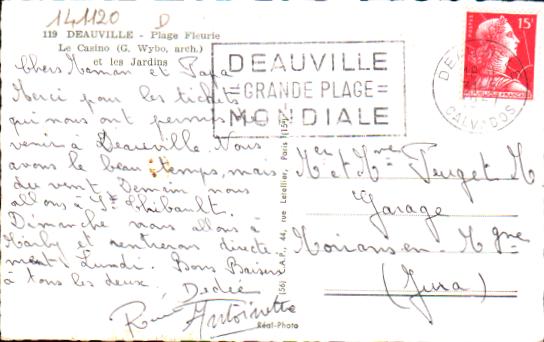 141120 D
119 DEAUVILLE - Plage Fleurie
Le Casino (G. Wybo, arch.)
et les Jardins
Chers Maman et Papa
Merci pour les tickets
qui nous ont permis
venir à Deauville. Nous
avons le beau temps, mais
du vent. Demain nous
allons à St Thibault.
Dimanche nous allons à
Marly et rentreron directe
ment Lundi. Bons Baisers
à tous les deux. Dédée
Antoinette
DEAUVILLE
=GRANDE PLAGE=
MONDIALE
15F
POSTES
CALVADOS
(56) C.A.P., 44, rue Letellier, Paris (15e)
Réal-Photo
Mr et Mme Puget M
Garage
Moirans en Mgne
(Jura)